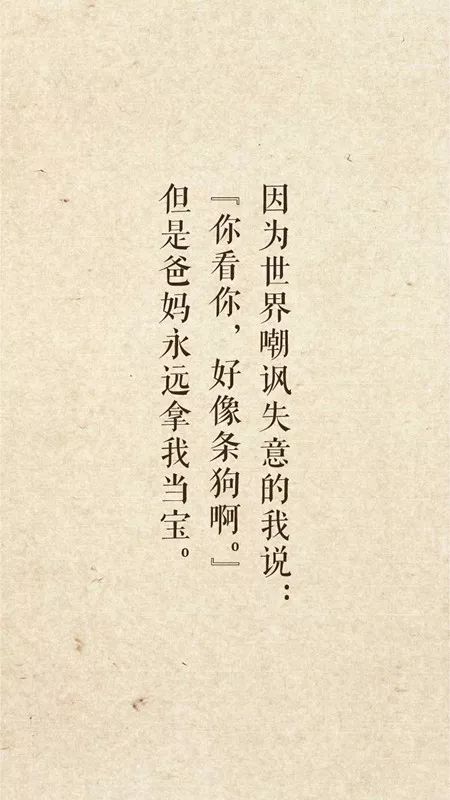 因为世界嘲讽失意的我说：
『你看你，好像条狗啊。』
但是爸妈永远拿我当宝。